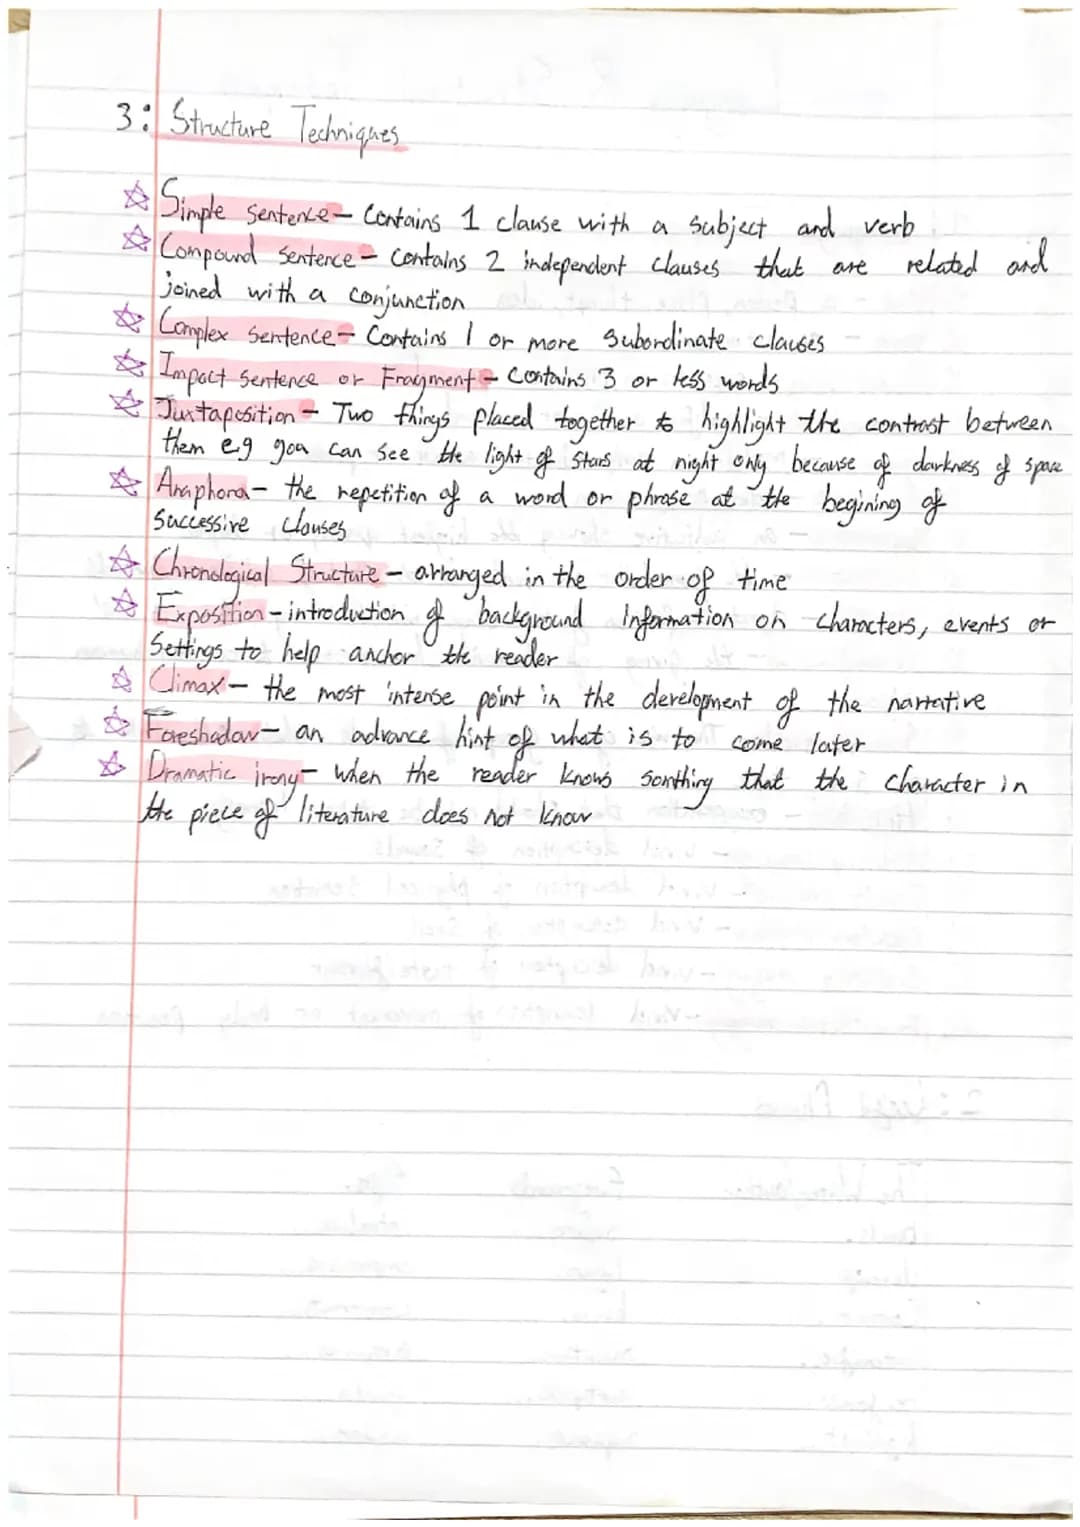 3: Structure Techniques
Simple sentence - Contains 1 clause with a subject and verb
Compound sentence - Contains 2 independent clauses that are related and
joined with a conjunction
Complex sentence - Contains 1 or more subordinate clauses
Impact sentence or Fragment - Contains 3 or less words
Juxtaposition - Two things placed together to highlight the contrast between
them e.g you can see the light of stars at night only because of darkness of space
Anaphora - the repetition of a word or phrase at the begining of
Successive clauses
Chronological Structure - arranged in the order of time
Exposition - introduction of background information on characters, events or
Settings to help anchor the reader
Climax - the most intense point in the development of the narrative
Foreshadow - an advance hint of what is to come later
Dramatic irony - when the reader knows somthing that the character in
the piece of literature does not know